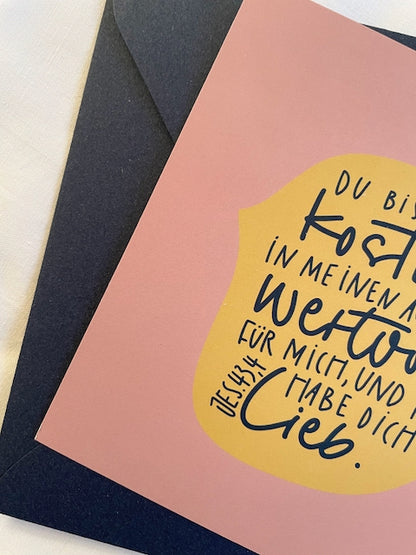 DU BIS
kost
IN MEINEN A
Wertvo
FÜR MICH, UND
HABE DICH
Lieb.
JES.43,4